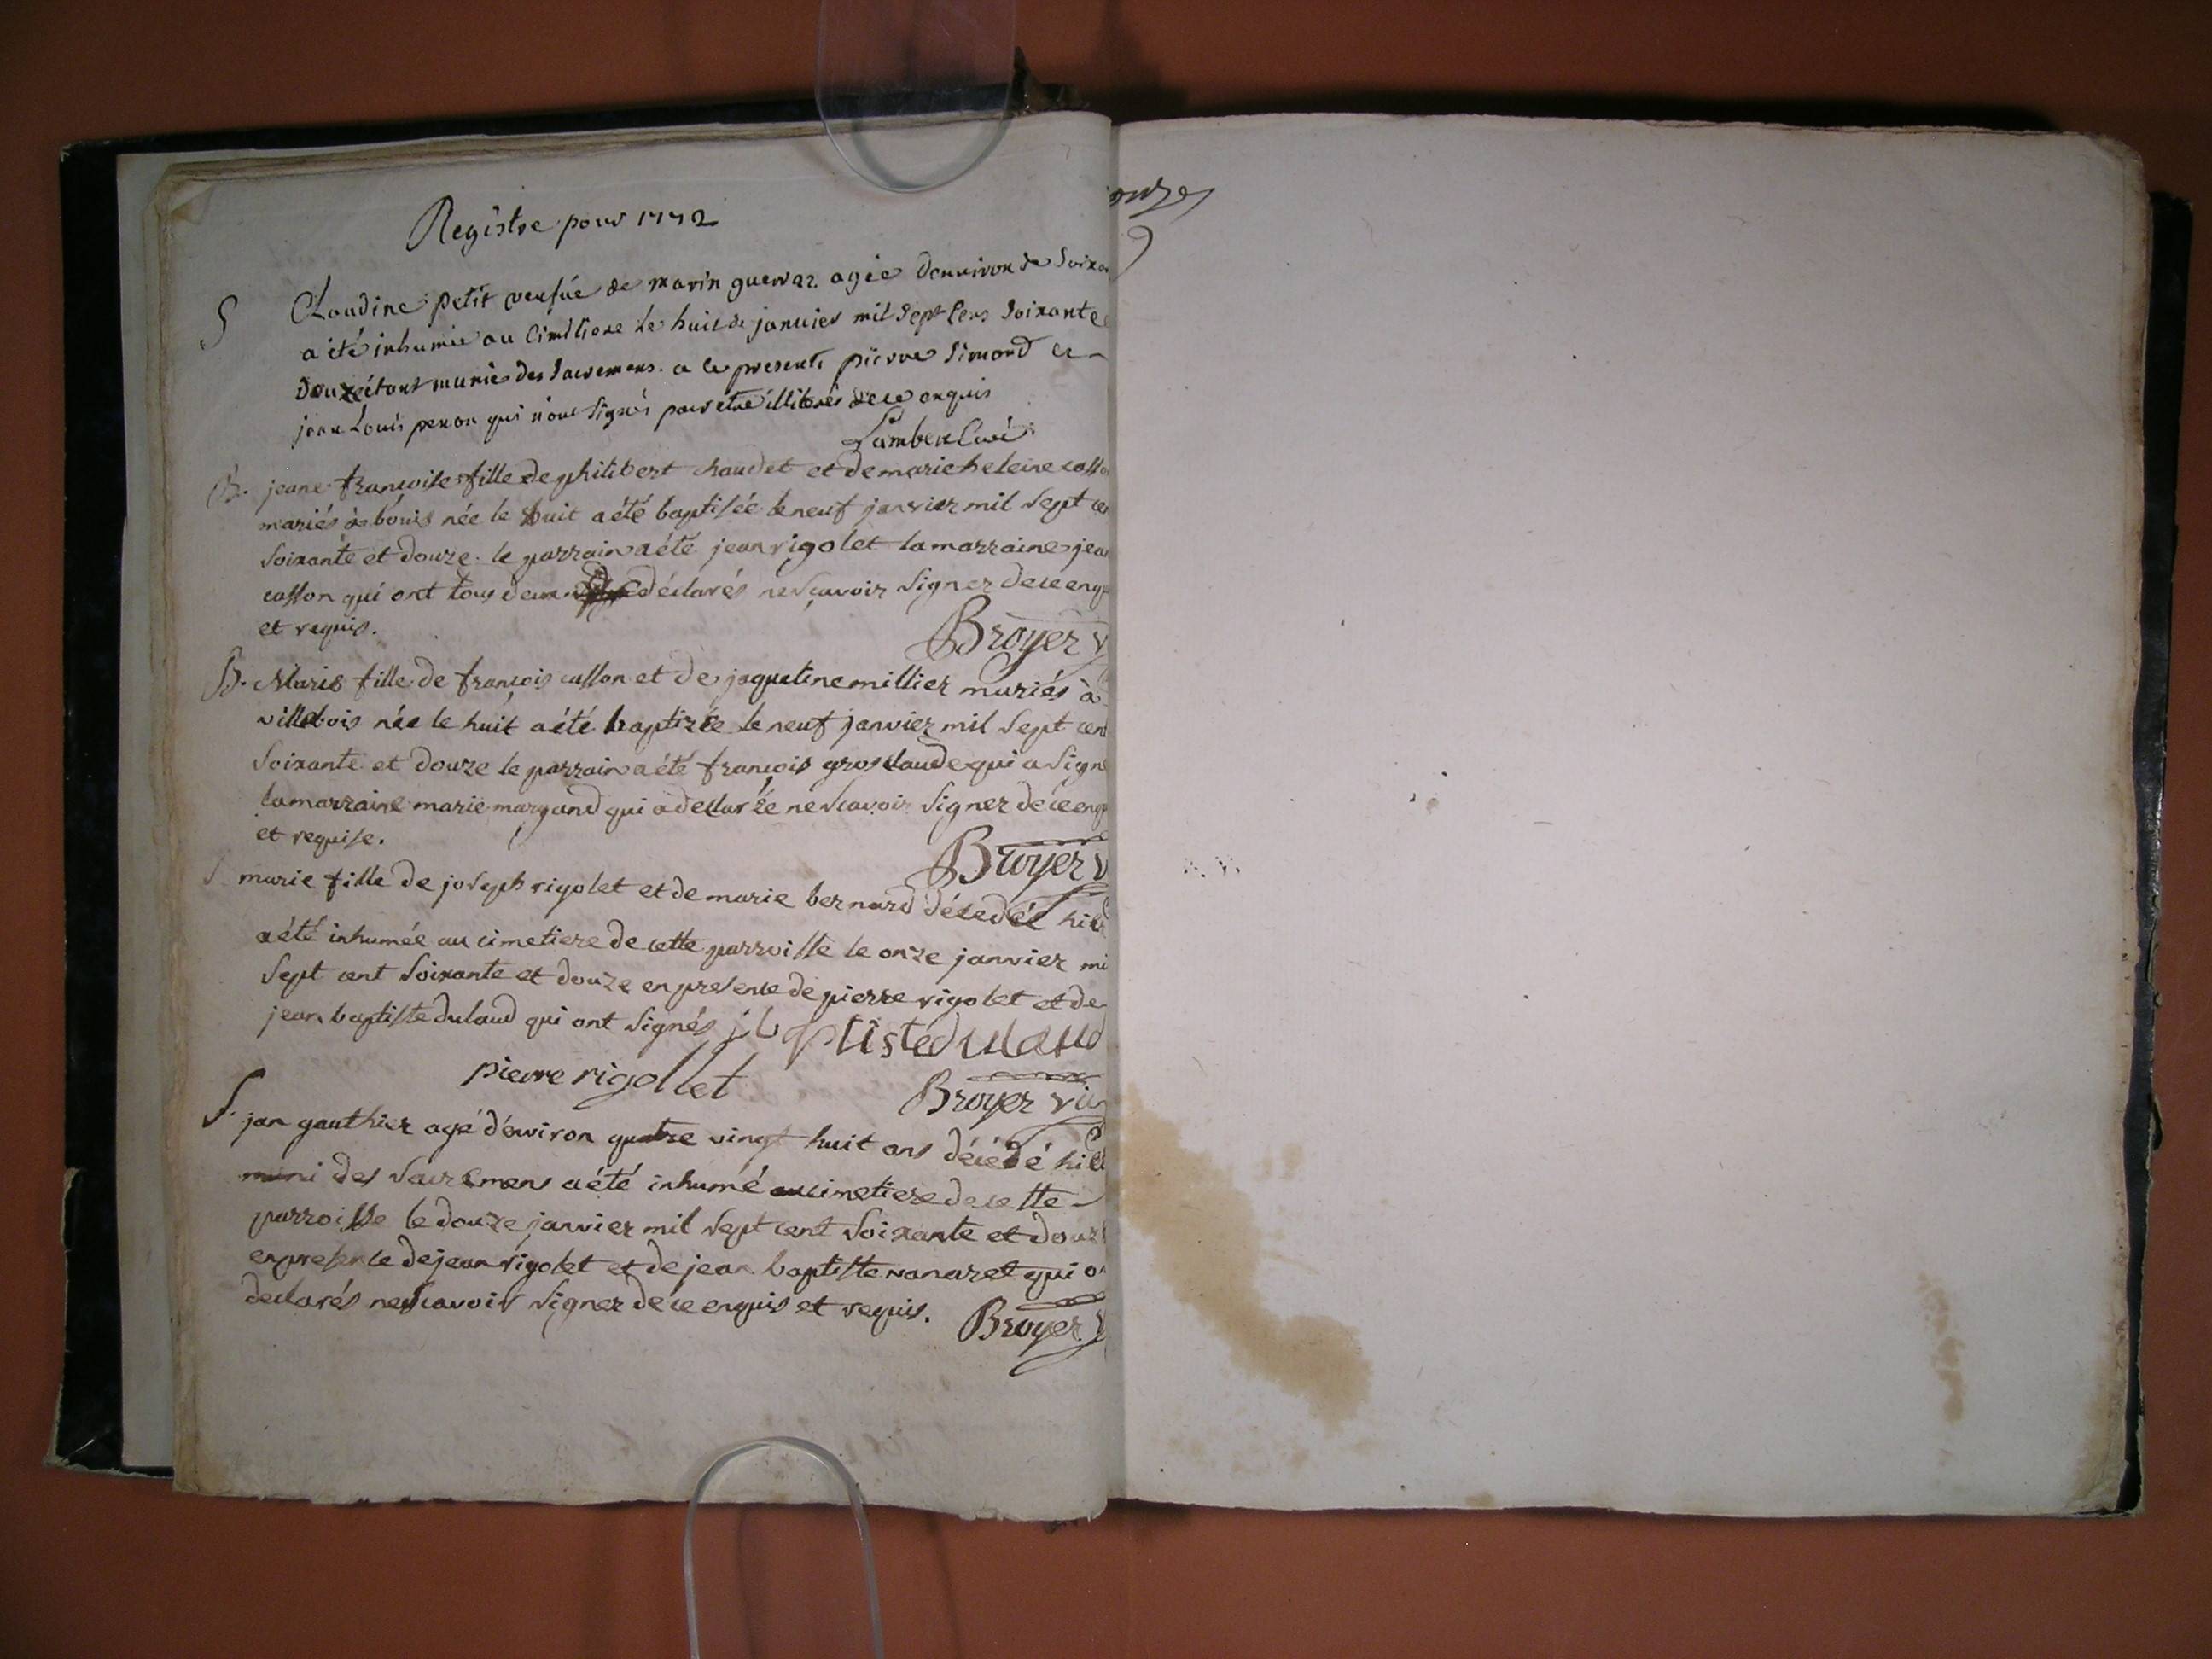 Registre pour 1772
S Claudine petit veufue de marin guerraz agée denuiron de soixan
a été inhumée au Cimitiere le huit de januier mil sept Cens soixante
douze étant munie des sacremens. a la presente pierre simond et
jean Louis penon qui n'ont signés pour etre illiterés de ce enquis
Lambert Curé
B. jeane francoise fille de philibert chaudet et de marie heleine casson
mariés à bouis née le huit a été baptisée le neuf janvier mil sept cen
soixante et douze. le parrain a été jean rigolet la marraine jean
casson qui ont tous deux déclarés ne sçavoir signer de ce enqu
et requis.
Broyer v
B. Marie fille de francois casson et de jaqueline millier mariés à
villebois née le huit a été baptizée le neuf janvier mil sept cent
soixante et douze le parrain a été francois grosclaude qui a signé
la marraine marie margand qui a declarée ne scavoir signer de ce enqu
et requise.
Broyer v
S marie fille de joseph rigolet et de marie bernard décedée hie
a été inhumée au cimetiere de cette parroisse le onze janvier mi
sept cent soixante et douze en presence de pierre rigolet et de
jean baptiste dulaud qui ont signés j b aptiste dulaud
pierre rigollet
Broyer vic
S. jan gauthier agé d'environ quatre vingt huit ans décédé hie
muni des sacremens a été inhumé au cimetiere de cette
parroisse le douze janvier mil sept cent soixante et douz
en presence de jean rigolet et de jean baptiste vanarel qui on
declarés ne scavoir signer de ce enquis et requis.
Broyer v
onze